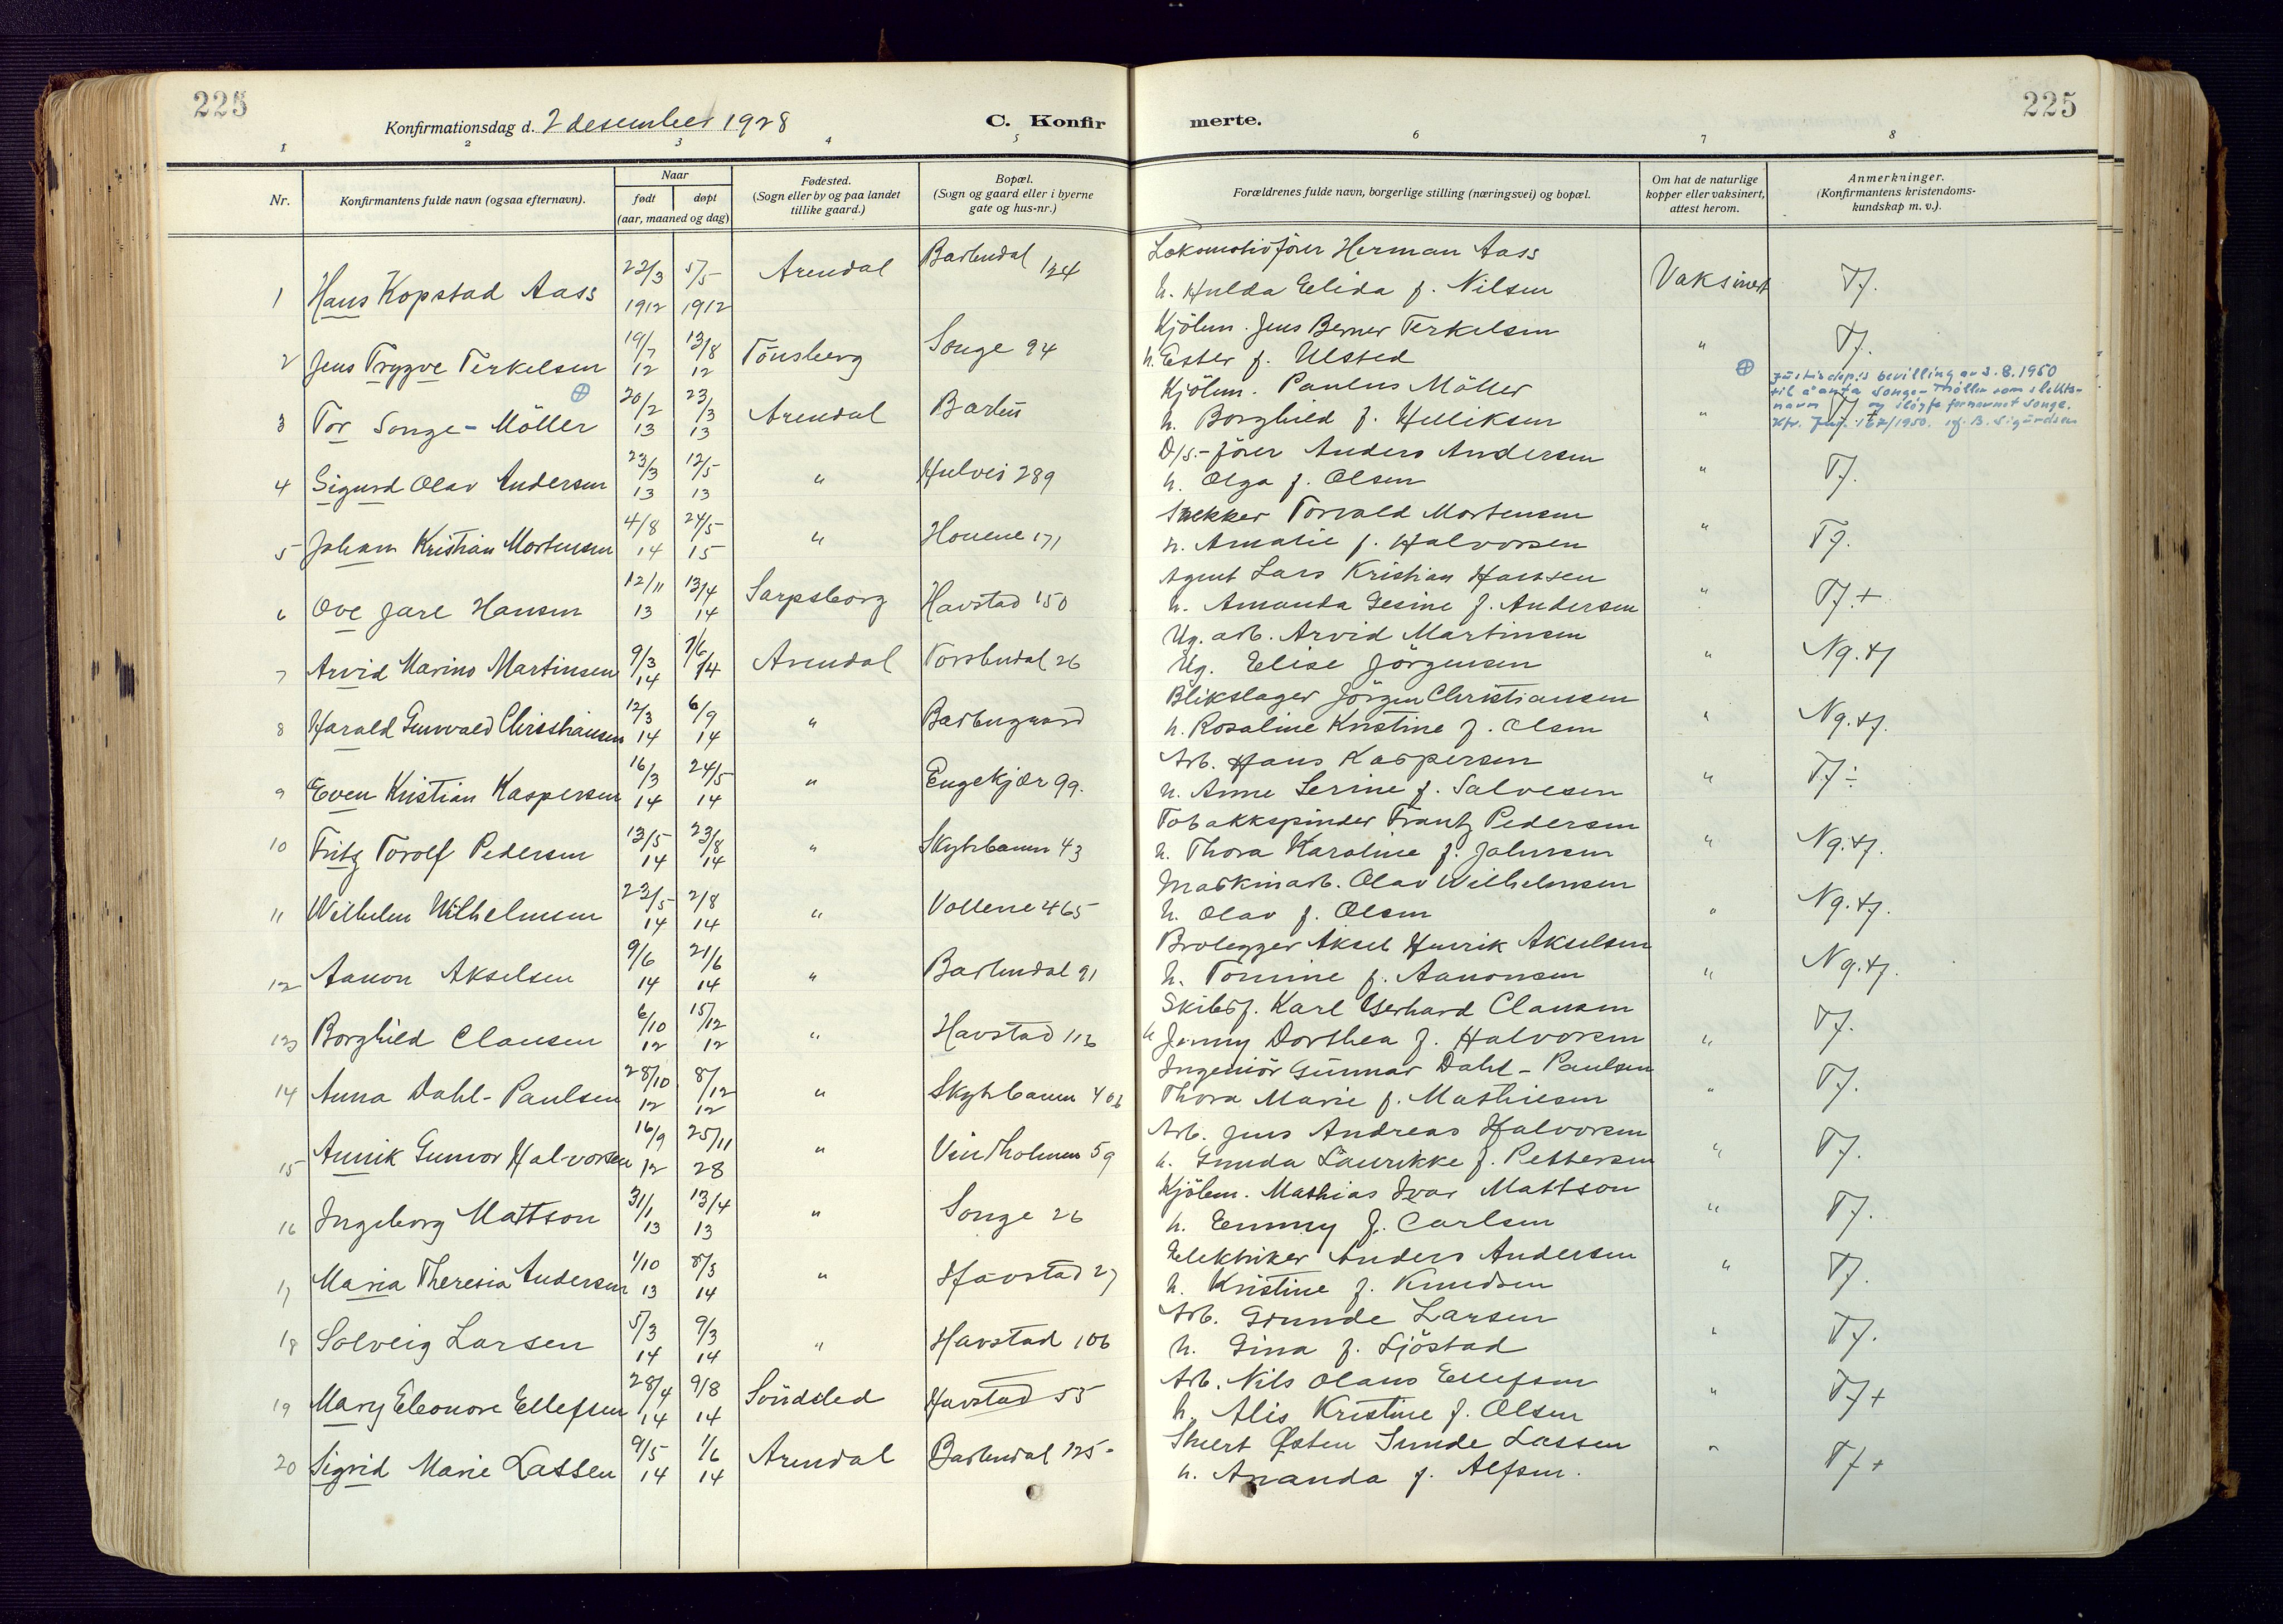 225
225
Konfirmationsdag d. 2 desember 1928
C. Konfir
merte.
1 2 3 4 5 6 7 8
Nr.
Konfirmantens fulde navn (ogsaa efternavn).
Naar
født døpt
(aar, maaned og dag)
Fødested.
(Sogn eller by og paa landet
tillike gaard.)
Bopæl.
(Sogn og gaard eller i byerne
gate og hus-nr.)
Forældrenes fulde navn, borgerlige stilling (næringsvei) og bopæl.
Om hat de naturlige
kopper eller vaksinert,
attest herom.
Anmerkninger.
(Konfirmantens kristendoms-
kundskap m. v.).
1 Hans Kopstad Aass 22/3 1912 5/5 1912 Arendal Barbudal 124 Lokomotivfører Herman Aass
h. Hulda Elida f. Nilsen Vaksinert Tf.
2 Jens Trygve Terkelsen 19/7 12 13/8 12 Tönsberg Songe 94 Kjölm. Jens Berner Terkelsen
h. Ester f. Ulsted " Tf.
3 Tor Songe-Möller 20/2 13 23/3 13 Arendal Barbu Kjölm. Paulus Möller
h. Borghild f. Helliksen " Tf.
⊕ Justisdep.s bevilling av 3.8.1950
til å anta Songe-Möller som slekts-
navn og slöyfe fornavnet Songe.
Kfr. Jnr. 167/1950. sgf. B. Sigurdsen
4 Sigurd Olav Andersen 23/3 13 12/5 13 " Hulvei 289 D/s.-förer Anders Andersen
h. Olga f. Olsen " Tf.
5 Johann Kristian Mortensen 4/8 14 24/5 15 " Houene 171 Snekker Torvald Mortensen
h. Amalie f. Halvorsen " Tf.
6 Ove Jarl Hansen 12/11 13 13/4 14 Sarpsborg Havstad 150 Agent Lars Kristian Hansen
h. Amanda Gesine f. Andersen " Tf.+
7 Arvid Marino Martinsen 9/3 14 7/6 14 Arendal Torsbudal 26 Ug. arb. Arvid Martinsen
Ug. Elise Jörgensen " Ng.tf
8 Harald Gunvald Christiansen 12/3 14 6/9 14 " Barbugaard Blikslager Jörgen Christiansen
h. Rosaline Kristine f. Olsen " Ng.tf.
9 Even Kristian Kaspersen 16/3 14 24/5 14 " Engekjær 99. Arb. Hans Kaspersen
h. Anne Serine f. Salvesen " Tf÷
10 Fritz Torolf Pedersen 13/5 14 23/8 14 " Skytebanen 43 Tobakkspinder Frantz Pedersen
h. Thora Karoline f. Johnsen " Ng.tf.
11 Wilhelm Wilhelmsen 23/5 14 2/8 14 " Vollene 465 Maskinarb. Olav Wilhelmsen
h. Olav f. Olsen " Ng.tf.
12 Aanon Akselsen 9/6 14 21/6 14 " Barbudal 91 Brolegger Aksel Henrik Akselsen
h. Tomine f. Aanonsen " Ng.tf.
13 Borghild Clausen 6/10 12 15/12 12 " Havstad 116 Skibsf. Karl Gerhard Clausen
h Jenny Dorthea f. Halvorsen " Tf.
14 Anna Dahl-Paulsen 28/10 12 8/12 12 " Skytebanen 406 Ingeniör Gunnar Dahl-Paulsen
Thora Marie f. Mathiesen " Tf.
15 Annik Gunvor Halvorsen 16/9 12 25/11 28 " Vindholmen 59 Arb. Jens Andreas Halvorsen
h. Gunda Laurikke f. Pettersen " Tf.
16 Ingeborg Mattson 31/1 13 13/4 13 " Songe 26 Kjölm. Mathias Ivar Mattson
h. Emmy f. Carlsen " Tf.
17 Maria Theresia Andersen 1/10 13 8/3 14 " Havstad 27 Elektriker Anders Andersen
h. Kristine f. Knudsen " Tf.
18 Solveig Larsen 5/3 14 9/3 14 " Havstad 106 Arb. Gunde Larsen
h. Gina f. Sjöstad " Tf.
19 Mary Eleonore Ellefsen 28/4 14 9/8 14 Söndeled Havstad 55 Arb. Nils Olaus Ellefsen
h. Alis Kristine f. Olsen " Tf+
20 Sigrid Marie Lassen 9/5 14 1/6 14 Arendal Barbudal 125- Stuert Østen Sunde Lassen
h. Ananda f. Alfsen. " Tf+